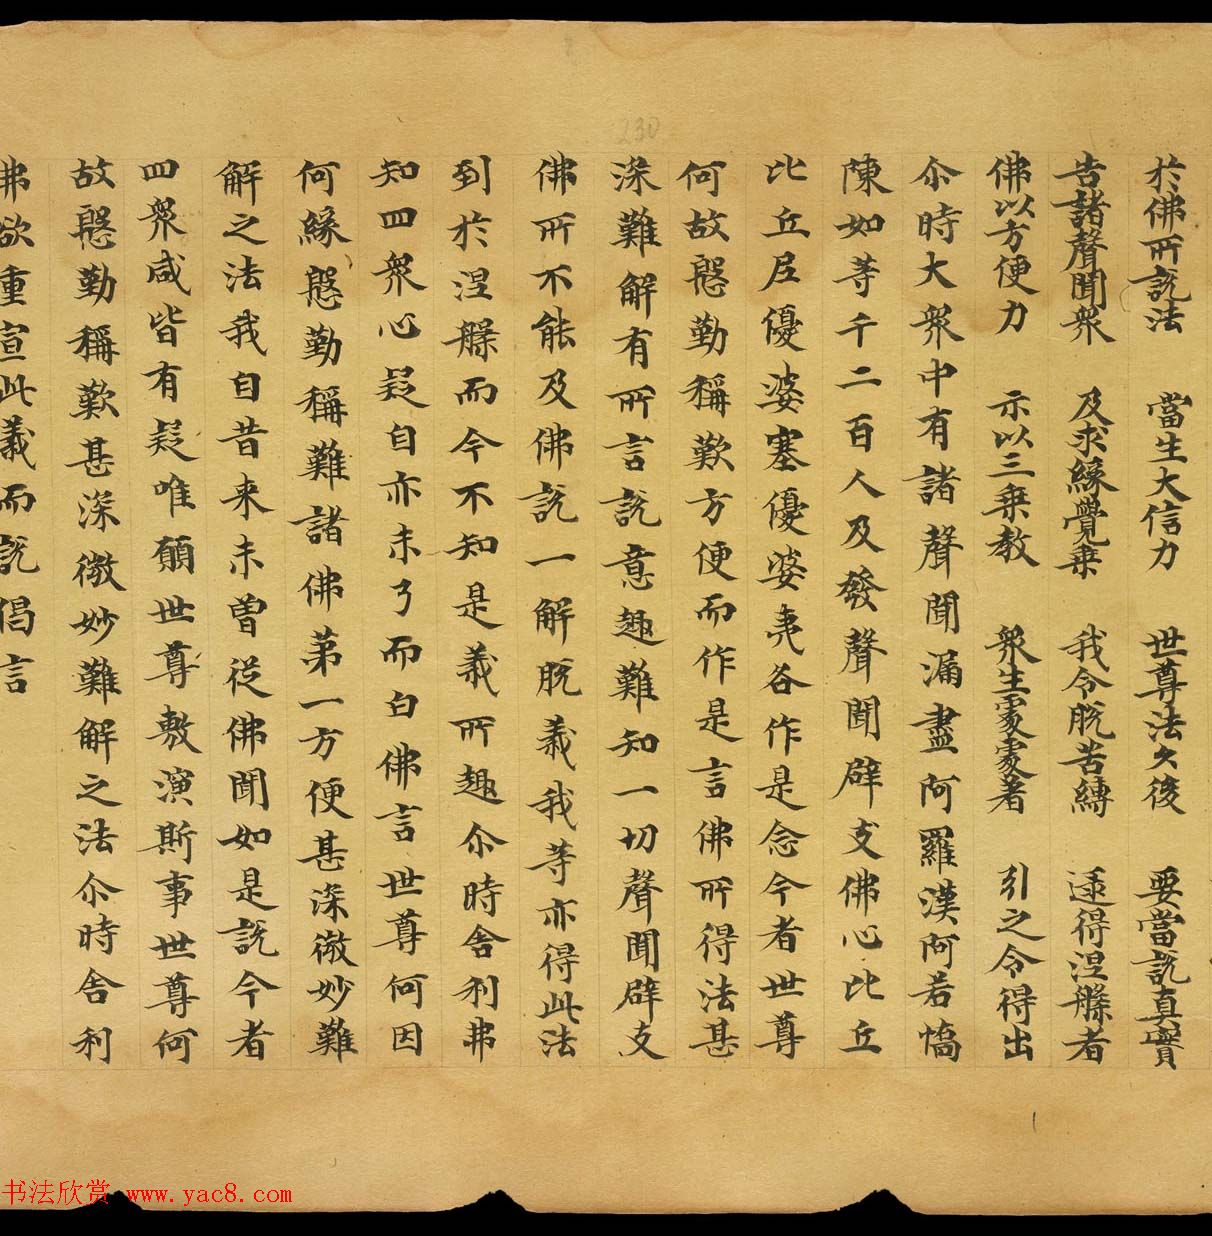 於佛所說法　當生大信力　世尊法久後　要當說真實
告諸聲聞眾　及求緣覺乗　我令脫苦縛　逮得涅槃者
佛以方便力　示以三乗教　眾生處處著　引之令得出
尒時大眾中有諸聲聞漏盡阿羅漢阿若憍
陳如等千二百人及發聲聞辟支佛心比丘
比丘尼優婆塞優婆夷各作是念今者世尊
何故慇勤稱歎方便而作是言佛所得法甚
深難解有所言說意趣難知一切聲聞辟支
佛所不能及佛說一解脫義我等亦得此法
到於涅槃而今不知是義所趣尒時舍利弗
知四眾心疑自亦未了而白佛言世尊何因
何緣慇勤稱難諸佛第一方便甚深微妙難
解之法我自昔来未曽從佛聞如是說今者
四眾咸皆有疑唯願世尊敷演斯事世尊何
故慇勤稱歎甚深微妙難解之法尒時舍利
弗欲重宣此義而說偈言
230
书法欣赏 www.yac8.com